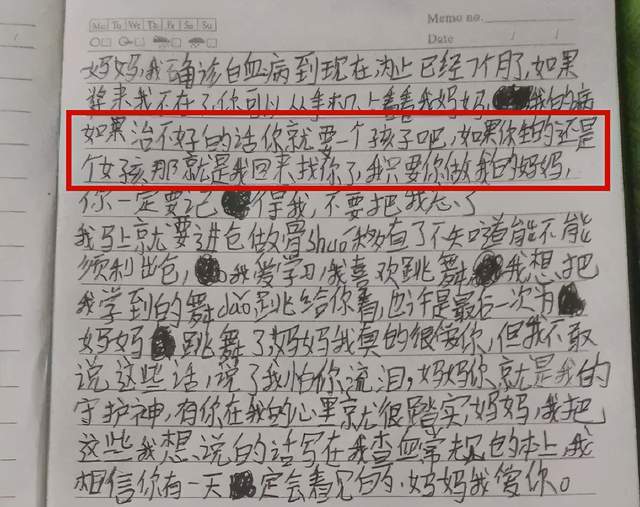 Mo Tu We Th Fr Sa Su
Memo no.
Date / /
妈妈,我确诊白血病到现在为止已经7个月了,如果
将来我不在了,你可以从手机上看看我妈妈,我的病
如果治不好的话你就要一个孩子吧,如果你生的还是
个女孩那就是我回来找你了,我只要你做我的妈妈,
你一定要记得我,不要把我忘了
我马上就要进仓做骨shuǐ移植了不知道能不能
须利出仓,我爱学习,我喜欢跳舞我想把
我学到的舞dǎo跳给你看,也许是最后一次为
妈妈跳舞了妈妈我真的很爱你,但我不敢
说这些话,说了我怕你流泪,妈妈你就是我的
守护神,有你在我的心里就很踏实,妈妈,我把
这些我想说的话写在我查血常规的本上,我
相信你有一天定会看见的,妈妈我爱你。